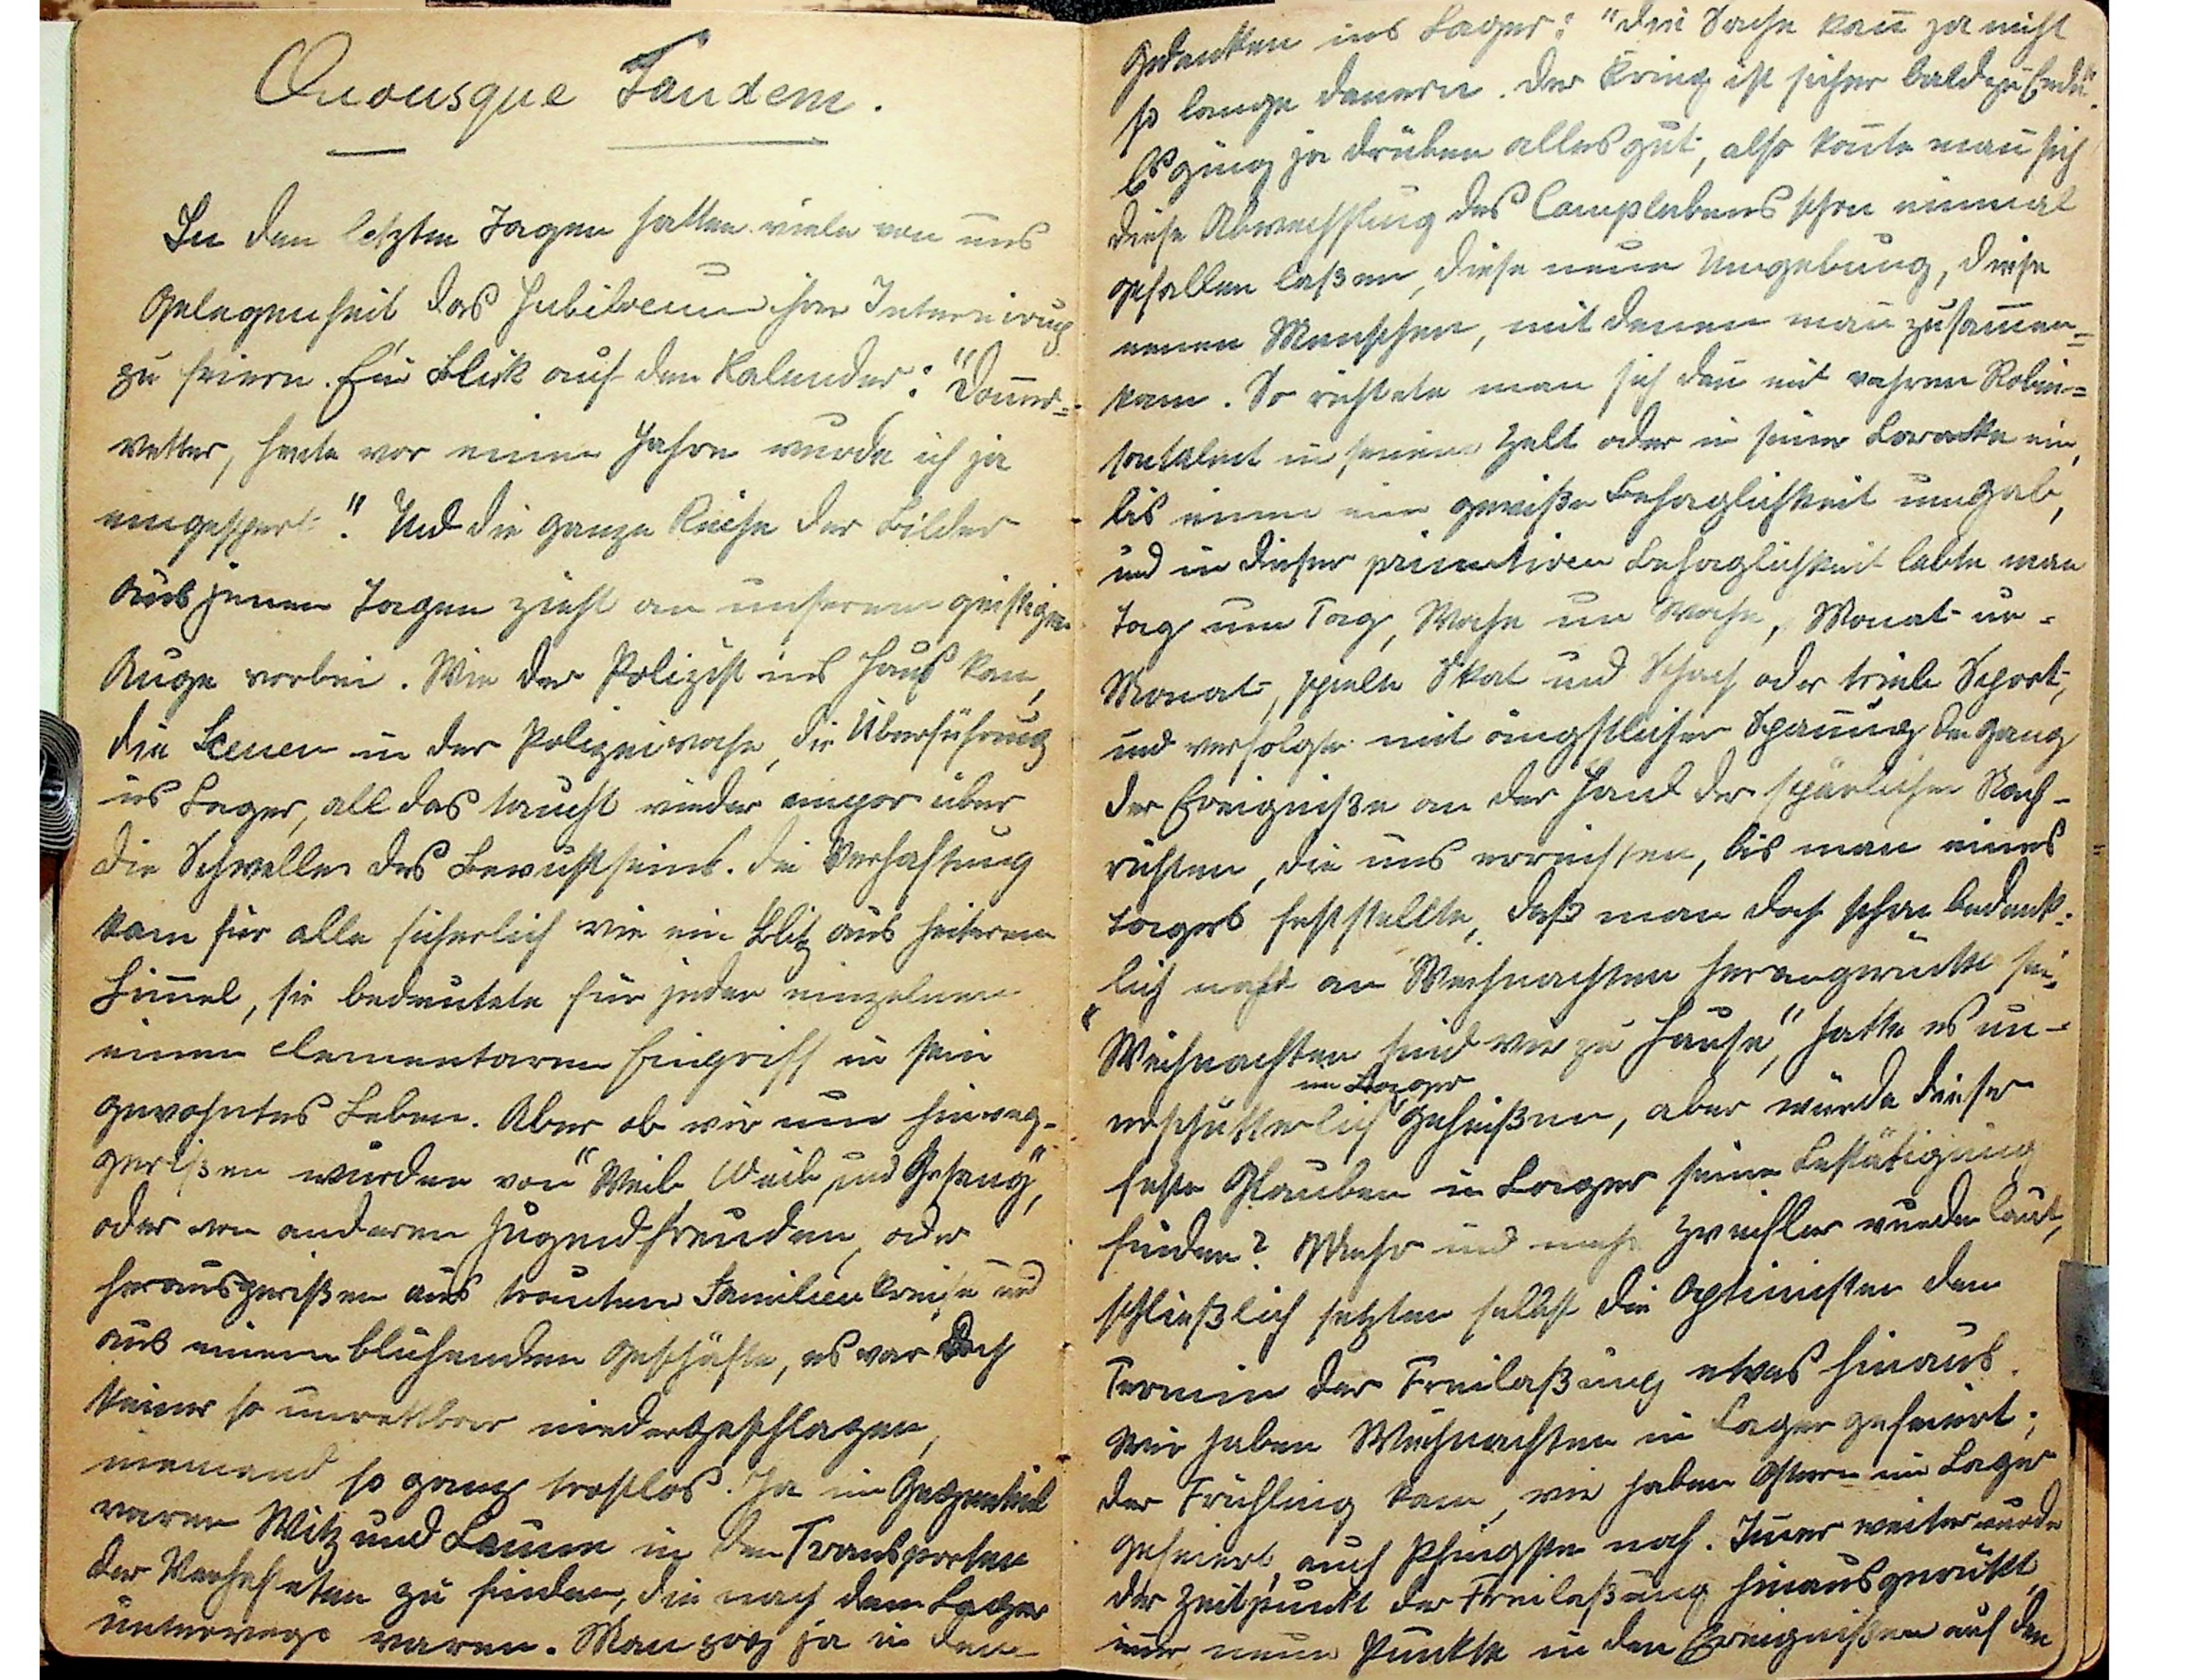 Quousque Tandem.
In den letzten Tagen hatten viele von uns
Gelegenheit, das Jubiläum ihrer Internirung
zu feiern. Ein Blick auf den Kalender: "Donner=
wetter, heute vor einem Jahre wurde ich ja
eingesperrt." Und die ganze Reihe der Bilder
aus jenen Tagen zieht an unserem geistigen
Auge vorbei. Wie der Polizist ins Haus kam,
die Scenen in der Polizeiwache, die Überführung
ins Lager, all das taucht wieder empor über
die Schwelle des Bewußtseins. Die Verhaftung
kam für alle sicherlich wie ein Blitz aus heiterem
Him̅el, sie bedeutete für jeden einzelnen
einen elementaren Eingriff in sein
gewohntes Leben. Aber ob wir nun hinweg-
gerißen wurden von "Weib, Wein und Gesang",
oder von anderen Jugendfreuden, oder
herausgerißen aus trautem Familienkreise und
aus einem blühenden Geschäfte, es war doch
keiner so unrettbar niedergeschlagen,
niemand so ganz trostlos. Ja im Gegenteil
waren Witz und Laune in den Transporten
der Verhafteten zu finden, die nach dem Lager
unterwegs waren. Man zog ja in dem
Gedanken ins Lager: "Die Sache kan̅ ja nicht
so lange dauern. Der Krieg ist sicher bald zu Ende".
Es ging ja drüben alles gut, also kon̅te man sich
diese Abwechslung des Camplebens schon einmal
gefallen laßen, diese neue Umgebung, diese
neuen Menschen, mit denen man zusam̅en=
kam. So richtete man sich dan̅ mit wahrem Robin=
sontalent in seinem Zelt oder in seiner Baracke ein,
bis einen eine gewiße Behaglichkeit umgab,
und in dieser primitiven Behaglichkeit lebte man
Tag um Tag, Woche um Woche, Monat um
Monat, spielte Skat und Schach oder trieb Sport,
und verfolgte mit ängstlicher Span̅ung den Gang
der Ereigniße an der Hand der spärlichen Nach-
richten, die uns erreichten, bis man eines
Tages feststellte, daß man doch schon bedenk-
lich nahe an Weihnachten herangerückt sei.
"Weihnachten sind wir zu Hause," hatte es un-
erschütterlich im Lager geheißen, aber würde dieser
feste Glauben im Lager seine Bestätigung
finden? Mehr und mehr Zweifler wurden laut,
schließlich setzten selbst die Optimisten den
Termin der Freilaßung etwas hinaus.
Wir haben Weihnachten im Lager gefeiert;
der Frühling kam, wir haben Ostern im Lager
gefeiert, auch Pfingsten noch. Im̅er weiter wurde
der Zeitpunkt der Freilaßung hinausgerückt,
im̅er neue Punkte in den Ereignißen auf den